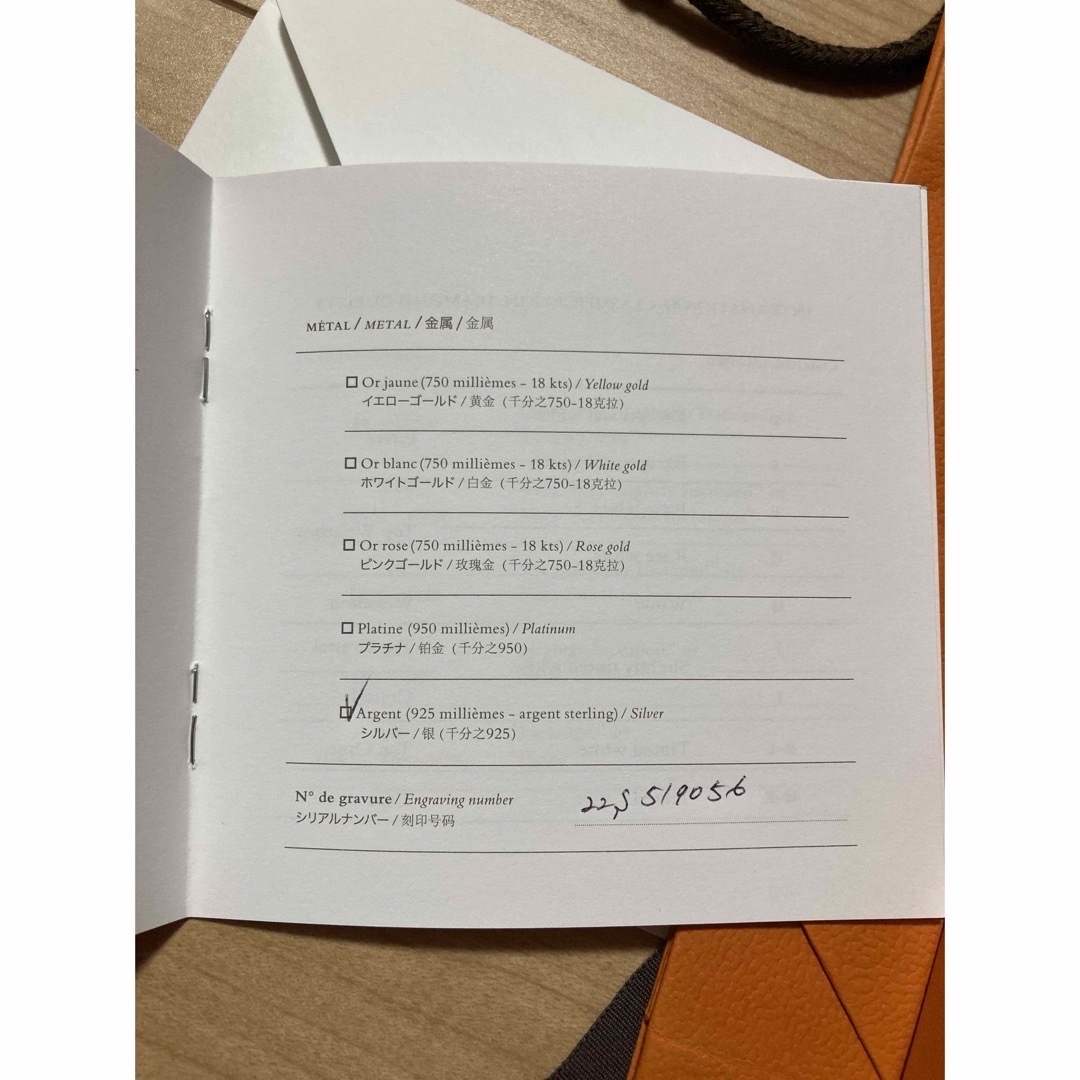 MÉTAL / METAL / 金属 / 金属
☐ Or jaune (750 millièmes - 18 kts) / Yellow gold
イエローゴールド / 黄金（千分之750-18克拉）
☐ Or blanc (750 millièmes - 18 kts) / White gold
ホワイトゴールド / 白金（千分之750-18克拉）
☐ Or rose (750 millièmes - 18 kts) / Rose gold
ピンクゴールド / 玫瑰金（千分之750-18克拉）
☐ Platine (950 millièmes) / Platinum
プラチナ / 铂金（千分之950）
☑ Argent (925 millièmes - argent sterling) / Silver
シルバー / 银 (千分之925)
N° de gravure / Engraving number 22S 519056
シリアルナンバー / 刻印号码